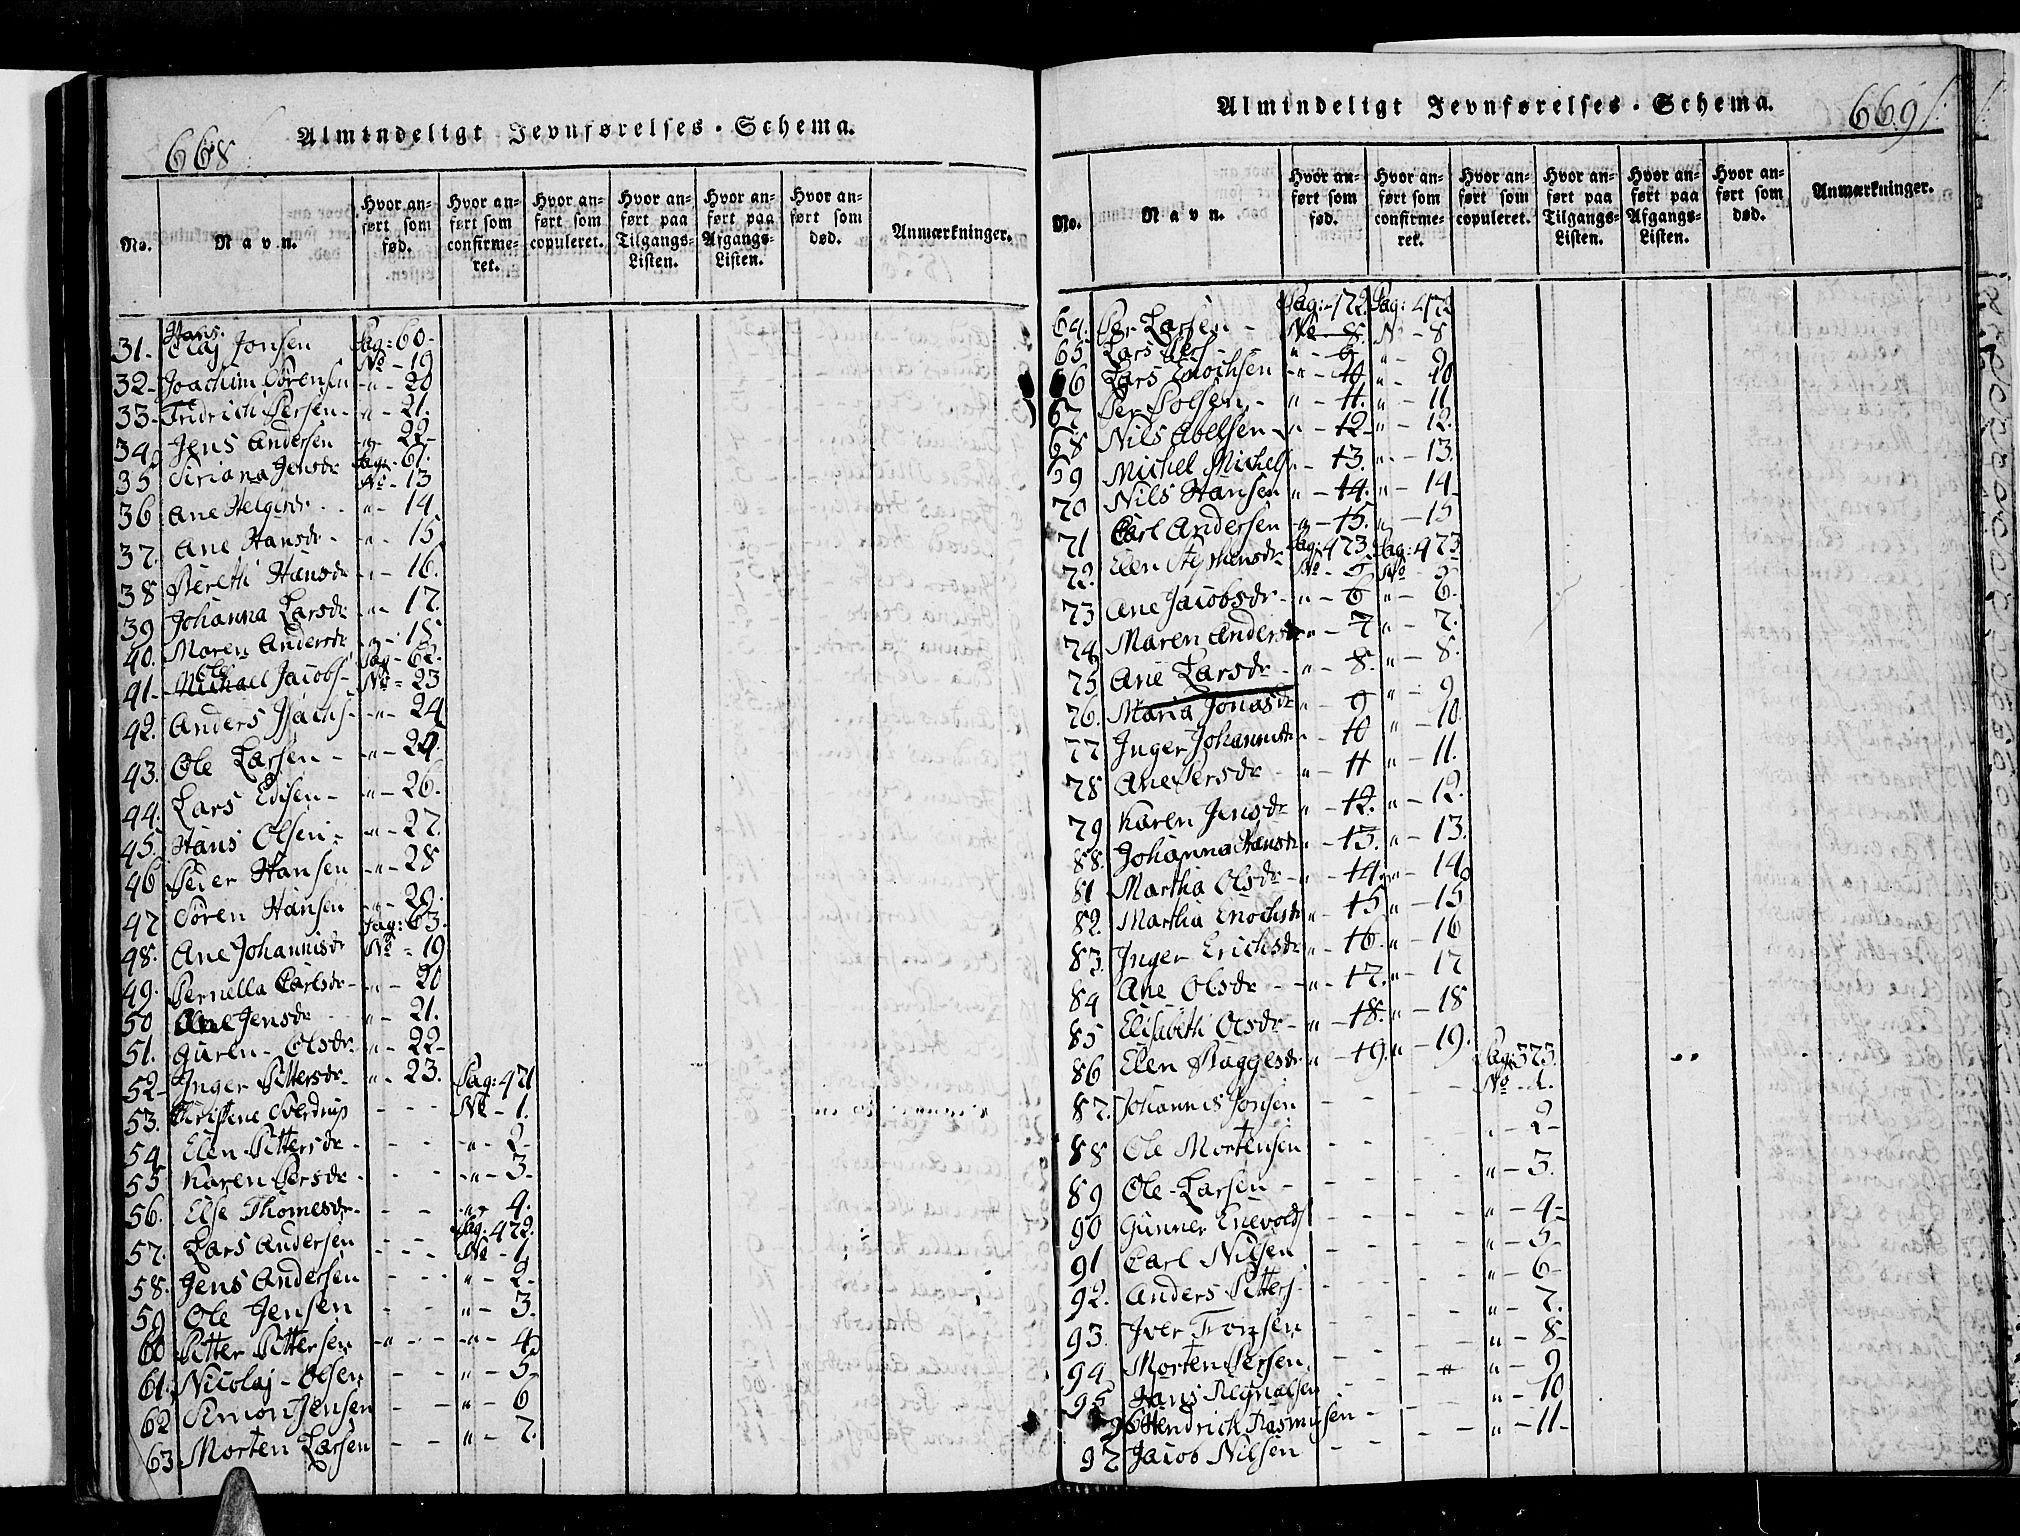 668
Almindeligt Jevnførelses-Schema.
No.
Navn.
Hvor anført som fød.
Hvor anført som confirmeret.
Hvor anført som copuleret.
Hvor anført paa Tilgangs-Listen.
Hvor anført paa Afgangs-Listen.
Hvor anført som død.
Anmærkninger.
31. Hans Olaj Jonsen Pag: 60. No - 19
32 - Joachim Sörensen - " - 20
33 - Fridrich Persen - " - 21.
34 Jens Andersen - " - 22 -
35 Siriana Jensdr Pag: 61. No - 13
36 Ane Helgesdr - " - 14
37. Ane Hansdr - - " - 15
38 Bereth Hansdr - " - 16.
39 Johanna Larsdr - " - 17.
40. Maren Andersdr - " - 18
41 - Ole Jacobs - Pag - 62. No - 23
42. Anders - " - 24
43. Ole Larsen - - " - 24.
44. Lars Edisen - - " - 26.
45. Hans Olsen - - " - 27.
46 Peder Hansen - " - 28
47 Sören Hansen - " - 29.
48. Ane Johannisdr Pag: 63. No - 19
49. Pernella Carlsdr - " - 20
50 Ane Jensdr " - 21.
51. Guren - Olsdr - " - 22 -
52 - Inger Pittersdr - " - 23.
53. Christene Sverdrup - - - Pag: 471 No - 1.
54 Elen Pittersdr - - - - " - 2 -
55 Karen Persdr - - - - " - 3 -
56. Else Thomesdr - - - - " - 4.
57. Lars Andersen - - - Pag: 472. No - 1
58. Jens Andersen - - - " - 2 -
59 Ole Jensen - - " - 3.
60 Pitter Pittersen - " - - - " - 4
61. Nicolaj - Olsen - - " - 5 -
62 Simon Jensen - - " - 6
63 Morten Larsen - - " - 7.
669
Almindeligt Jevnførelses-Schema.
No.
Navn.
Hvor anført som fød.
Hvor anført som confirmeret.
Hvor anført som copuleret.
Hvor anført paa Tilgangs-Listen.
Hvor anført paa Afgangs-Listen.
Hvor anført som død.
Anmærkninger.
64. Per Larsen - Pag: 472. No - 8. Pag: 472 No - 8
65 Lars Pers - " - 9 " - 9
66 Lars Enochsen - " - 10 " - 10
67 Per Polsen - " - 11. " - 11
68 Nils Abelsen - " - 12 - " - 12.
69 Michel Michels " - 13. " - 13.
70 Nils Hansen " - 14. " - 14 -
71 Carl Andersen - " - 15. " - 15
72. Elen Pag: 473. No - 5 Pag: 473 No - 5
73 Ane Jacobsdr - " - 6 " - 6.
74 Maren Andersdr " - 7 " - 7.
75 Ane Larsdr - " - 8. " - 8.
76. Maria Jonasdr " - 9 " - 9
77 Inger Johannisdr " - 10 " - 10.
78 Ane Persdr " - 11 " - 11.
79 Karen Jensdr " - 12. " - 12.
88. Johanna Hansdr " - 13. " - 13.
81 Martha Olsdr - " - 14 " - 14
82. Martha Enochsdr " - 15 " - 15
83. Inger Erichsdr " - 16. " - 16
84 Ane Olsdr - - " - 17. " - 17
85 Elisabeth Olsdr - " - 18. " - 18
86 Elen Baggesdr " - 19. " - 19.
87. Johannis Jonsen - - - - Pag: 573. No - 1.
88 Ole Mortensen - - - " - 2 -
89 Ole - Larsen - - - - - " - 3.
90 Gunner Enevolds - - - - " - 4 -
91 Carl Nilsen - - - - " - 5 -
92. Anders Pitters - - - - " - 6 -
93. Iver Tronsen - - - - " - 7.
94 Morten Persen. - - - " " - 8 -
95 Hans - - - " - 9
96 Hendrich Rasmusen - - - " - 10
97 Jacob Nilsen - - - " - 11 -